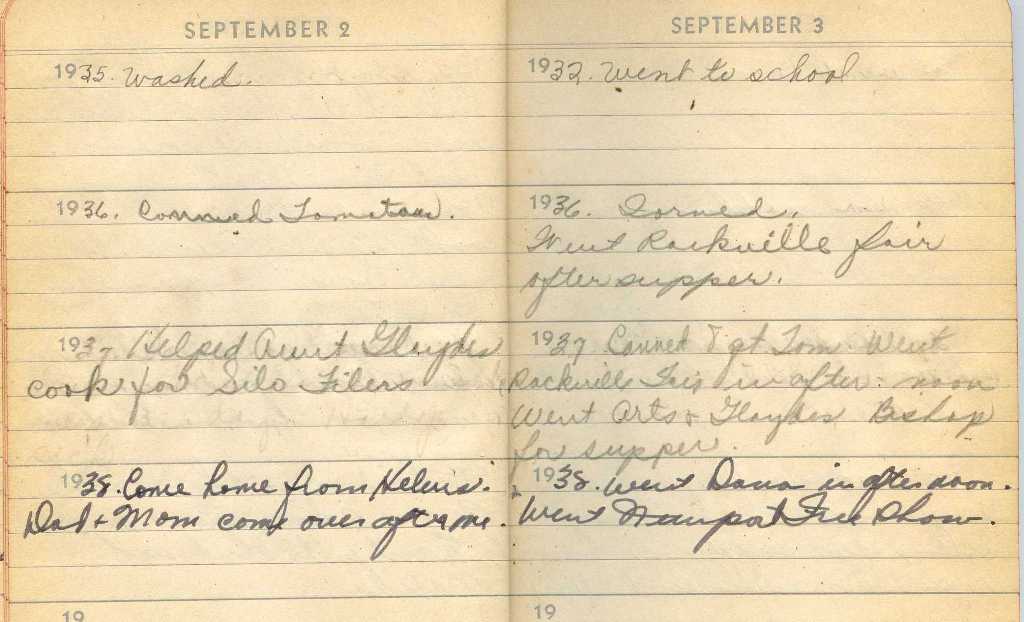 SEPTEMBER 2
1935. Washed.
1936. Conned Tomatoes.
1937 Helped Aunt Glaydes
cook for Silo Filers
1938. Come home from Helens.
Dad + Mom come over after me.
19
SEPTEMBER 3
1932. Went to school
1936. Iorned.
Went Rockville fair
after supper.
1937 Canned 7 qt Tom. Went
Rockville Fair in after. noon
Went Arts & Glaydes Bishop
for supper.
1938. Went Dana in after noon.
Went Newport Free Show.
19